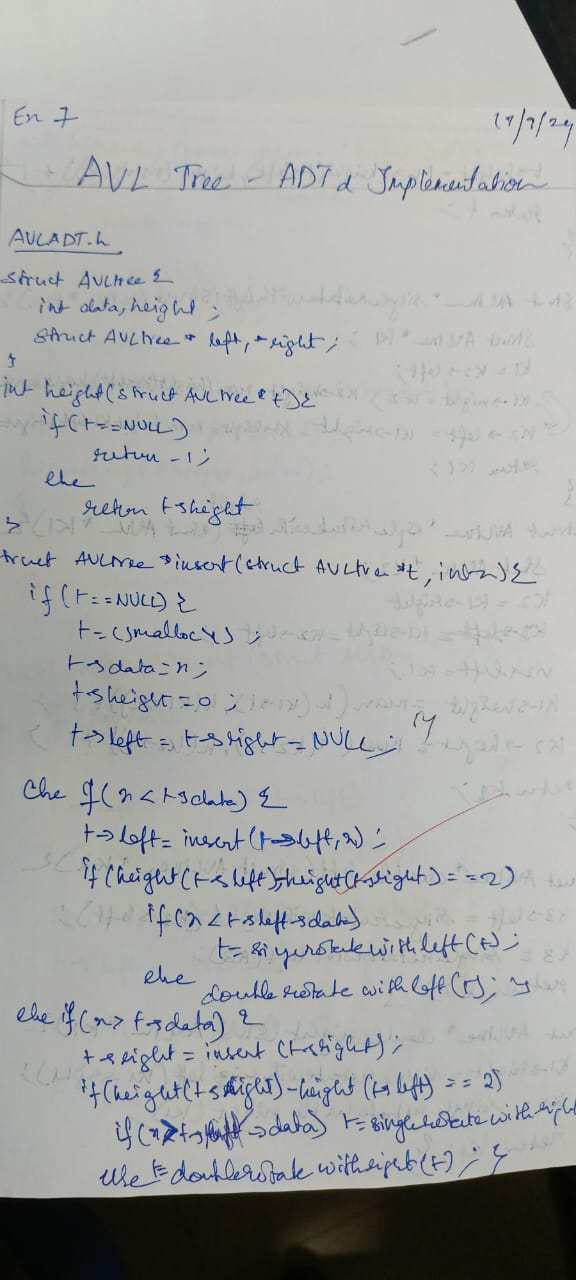 En 7
17/7/24
AVL Tree - ADT & Implementation
AVLADT.h
struct AVLtree {
int data, height ;
struct AVLtree * left, * right ;
}
int height(struct AVLtree * t) {
if (t==NULL)
return -1;
else
return t->height
}
truct AVLtree *insert (struct AVLtree *t, int x) {
if (t==NULL) {
t=
t->data=x;
t->height = 0 ;
t->left = t->right = NULL; }
else if(x < t->data) {
t->left = insert (t->left, x) ;
if (height (t->left)-height(t->right) = = 2)
if (x < t->left->data)
t= singlerotatewithleft (t) ;
else
doublerotate withleft (t); }
else if (x > t->data) {
t->right = insert (t->right) ;
if (height(t->right) - height (t->left) == 2)
if (x > t-> ->data) t=singlerotate withright
else t= doublerotate withright (t) ; }